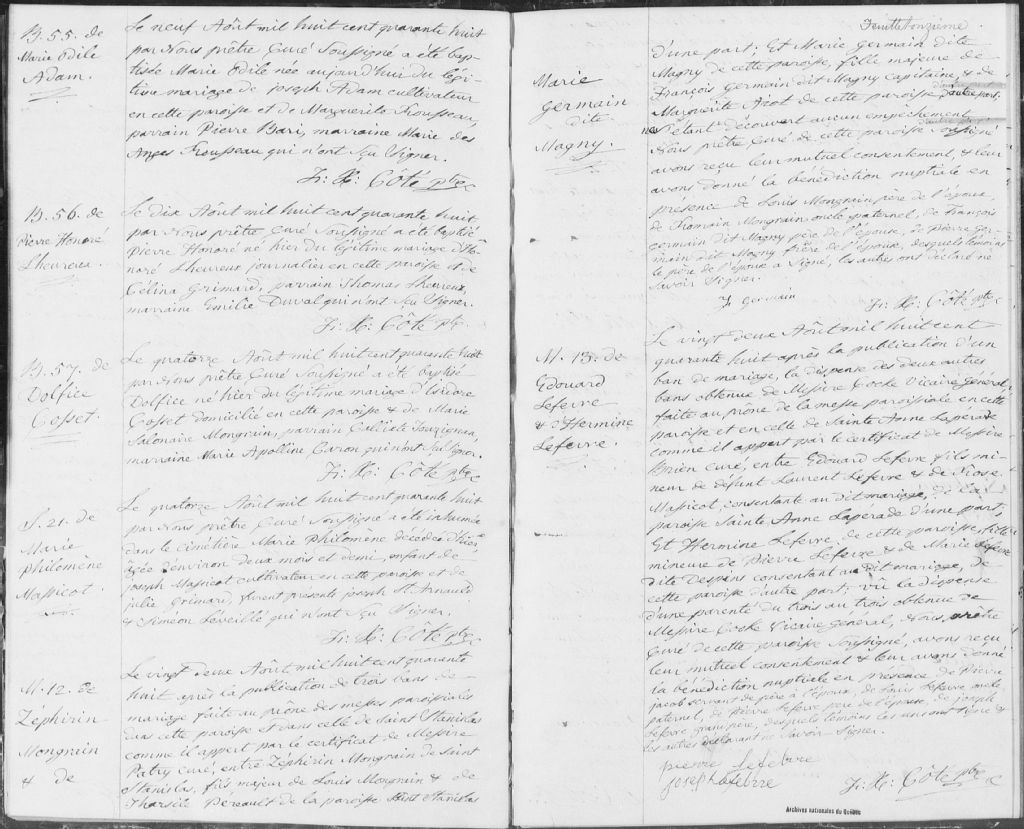 B. 55. de
Marie Odile
Adam.
Le neuf Août mil huit cent quarante huit
par Nous prêtre Curé Soussigné a été bap-
tisée Marie Odile née aujourd'hui du légi-
time mariage de joseph Adam cultivateur
en cette paroisse et de Marguerite Trousseau,
parrain Pierre Bari, marraine Marie des
Anges Trousseau qui n'ont Sçu Signer.
Fr: X: Côté ptre
B. 56. de
Pierre Honoré
L'heureux.
Le dix Août mil huit cent quarante huit
par Nous prêtre Curé Soussigné a été baptisé
Pierre Honoré né hier du légitime mariage d'Ho-
noré L'heureux journalier en cette paroisse et de
Célina Grimard, parrain Thomas L'heureux,
marraine Emilie Duval qui n'ont Sçu Signer.
Fr: X: Côté ptre
B. 57. de
Dolfice
Cosset.
Le quatorze Août mil huit cent quarante huit
par Nous prêtre Curé Soussigné a été baptisé
Dolfice né hier du légitime mariage d'Isidore
Cosset domicilié en cette paroisse & de Marie
Mongrain, parrain Calixte
marraine Marie Apolline Caron qui n'ont Sçu Signer.
Fr: X: Côté ptre
S. 21. de
Marie
philomène
Massicot.
Le quatorze Août mil huit cent quarante huit
par Nous prêtre Curé Soussigné a été inhumée
dans le cimétière Marie Philomène décédée
âgée d'environ deux mois et demi, enfant de
joseph Massicot cultivateur en cette paroisse et de
julie Grimard, furent presents joseph St. Arnauld
& Siméon Léveillé qui n'ont Sçu Signer.
Fr: X: Côté ptre
M. 12. de
Zéphirin
Mongrain
& de
Le vingt deux Août mil huit cent quarante
huit après la publication de trois bans de
mariage faite au prône des messes paroissiales
dans cette paroisse et dans celle de Saint Stanislas
comme il appert par le certificat de Messire
Patry curé, entre Zéphirin Mongrain de Saint
Stanislas, fils majeur de Louis Mongrain & de
Tharsile Perreault de la paroisse Saint Stanislas
Feuillet onzième.
Marie
Germain
dite
Magny.
d'une part; Et Marie Germain dite
Magny de cette paroisse, fille majeure de
François Germain dit Magny Capitaine, & de
Marguerite Arot de cette paroisse d'autre part.
N'étant découvert aucun empêchement,
Nous prêtre Curé de cette paroisse Soussigné
avons reçu leur mutuel consentement, & leur
avons donné la bénédiction nuptiale en
présence de Louis Mongrain, père de l'époux,
de Romain Mongrain oncle paternel, de François
Germain dit Magny père de l'épouse, de Pierre Ger-
main dit Magny frère de l'épouse, desquels témoins
le père de l'épouse a Signé, les autres ont déclaré ne
Savoir Signer.
F Germain
Fr: X: Côté ptre
M. 13. de
Edouard
Lefevre
& d'Hermine
Lefevre.
Le vingt deux Août mil huit cent
quarante huit après la publication d'un
ban de mariage, la dispense des deux autres
bans obtenue de Messire Cooke Vicaire Général,
faite au prône de la messe paroissiale en cette
paroisse et en celle de Sainte Anne Lapérade
comme il appert par le certificat de Messire
curé, entre Edouard Lefevre fils mi-
neur de défunt Laurent Lefevre & de Rose
Massicot, consentante au dit mariage, de la
paroisse Sainte Anne Lapérade d'une part;
Et Hermine Lefevre, de cette paroisse, fille
mineure de Pierre Lefevre & de Marie Lefevre
dite Despins consentant au dit mariage, de
cette paroisse d'autre part; vû la dispense
d'une parenté du trois au trois obtenue de
Messire Cooke Vicaire Général, Nous, prêtre
Curé de cette paroisse Soussigné, avons reçu
leur mutuel consentement & leur avons donné
la bénédiction nuptiale en presence de Pierre
jacob servant de père à l'époux, de Louis Lefevre oncle
paternel, de Pierre Lefevre père de l'épouse, de joseph
Lefevre grand père, desquels témoins les uns ont Signé &
les autres déclarant ne Savoir Signer.
pierre Lefebvre
Joseph Lefebvre
Fr: X: Côté ptre
Archives nationales du Québec